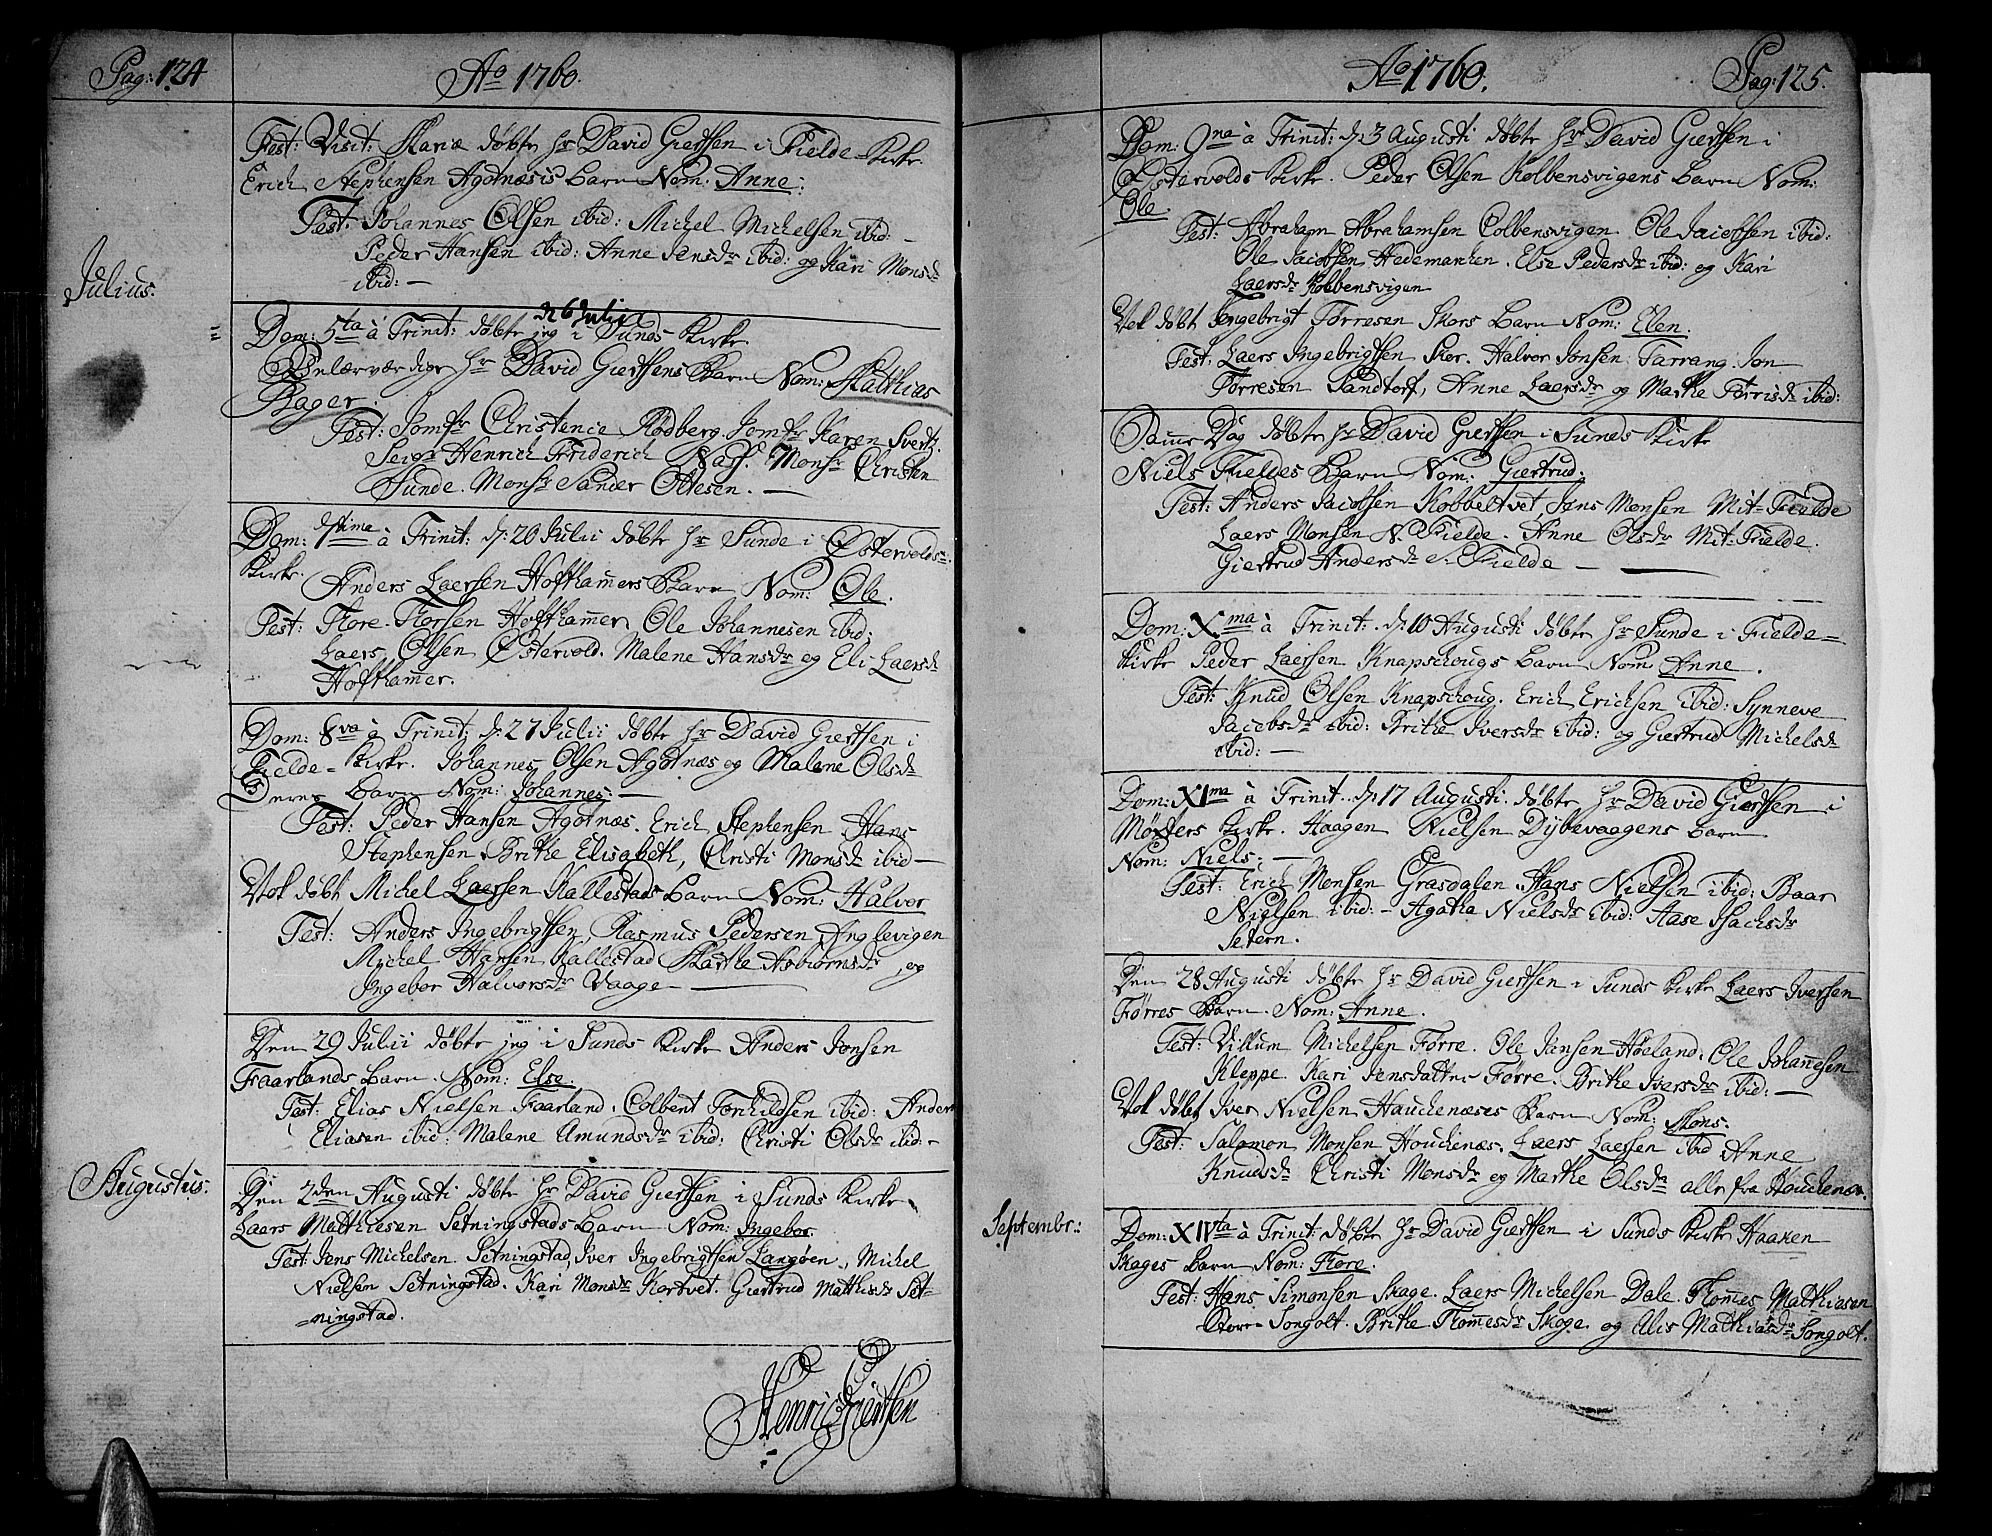 Pag: 124
Ao 1760.
Julius.
Fest: Visit: Mariæ døbte Hr David Giertsen i Fielde-Kirke
Erich Stephensen Agotnæsis Barn Nom: Anne:
Test: Johannes Olsen ibid: Michel Michelsen ibid: -
Peder Hansen ibid: Anne Jensdr ibid: og Kari Monsd
ibid: -
d 6 Julii
Dom: 5ta à Trinit: døbte jeg i Sunds Kirke
Velærværdige Hr David Giertsens Barn Nom: Matthias
Bager.
Test: Jomfr Christence Rødberg. Jomfr Karen Svertz.
Seigr Henrich Friderich Monsr Christen
Sunde. Monsr Sander Ottesen. -
Dom: 7tima à Trinit: d: 20 Julii døbte Hr Sunde i Østervolds
Kirke. Anders Laersen Hofthamers Barn Nom: Ole.
Test: Thore Thorsen Hofthamer, Ole Johannesen ibid:
Laers Olsen Østervold. Malene Hansdr og Eli Laersd
Hofthamer.
Dom: 8va à Trinit: d: 27 Julii døbte Hr David Giertsen i
Fielde-Kirke. Johannes Olsen Agotnæs og Malene Olsdr
Deres Barn Nom: Johannes: -
Test: Peder Hansen Agotnæs. Erich Stephensen Hans
Stephensen. Brithe Elisabeth, Christi Monsdr ibid -
Vok døbt Michel Laersen Kallestads Barn Nom: Halvor
Test: Anders Ingebrigtsen Rasmus Pedersen Anglevigen
Michel Hansen Kallestad Marthe Asbiornsdr og
Ingebor Halvorsdr Vaage -
Den 29 Julii døbte jeg i Sunds Kirke Anders Jonsen
Faarlands Barn. Nom: Else.
Test: Elias Nielsen Faarland. Colbent Tonhildsen ibid: Anders
Eliasen ibid: Malene Amundsdr ibid: Christi Olsdr ibid: -
Augustus.
Den 2den Augusti døbte Hr David Giertsen i Sunds Kirke
Laers Matthiesen Setningstads Barn Nom: Ingebor.
Test: Jens Michelsen. Setningstad, Iver Ingebrigtsen Langøen. Michel
Nielsen Setningstad. Kari Monsdr Kortvet. Giertrud Mathisdr Set-
-ningstad.
Henric Giertsen
Ao 1760.
Pag: 125.
Dom: 9na à Trinit: d: 3 Augusti døbte Hr David Giertsen i
Østervolds Kirke. Peder Olsen Kolbensvigens Barn Nom:
Ole.
Test: Abraham Abrahamsen Colbensvigen. Ole Jacobsen ibid:
Ole Jacobsen Hedemarken. Else Pedersdr ibid: og Kari
Laersdr Kolbensvigen
Vok døbt Ingebrigt Tørresen Skors Barn Nom: Elen.
Test: Laers Ingebrigtsen Skor. Halvor Jonsen Tarrang. Jon
Tørresen Sandtorf, Anne Laersdr og Marthe Torrisdr ibid:
Samme Dag døbte Hr David Giertsen i Sunds Kirke
Niels Fieldes Barn Nom: Giertrud.
Test: Anders Jacobsen Kobbeltvet Jens Monsen Mit-Fielde
Laers Monsen N. Fielde. Anne Olsdr Mit: Fielde.
Giertrud Andersdr N. Fielde - -
Dom: Xma à Trinit: d: 10 Augusti døbte Hr Sunde i Fielde-
Kirke Peder Laersen Knapschougs Barn Nom Anne.
Test: Knud Olsen Knapschoug. Erich Erichsen ibid: Synneve
Jacobsdr ibid: Brithe Iversdr ibid: og Giertrud Michelsdr
ibid: -
Dom: XIma à Trinit. d: 17 Augusti. døbte Hr David Giertsen i
Møxters Kirke. Haagen Nielsen Dybevaagens Barn
Nom: Niels: -
Test: Erich Monsen Grasdalen. Hans Nielsen ibid: Baar
Nielsen ibid: - Agatha Nielsdr ibid: Aase Isachsdr
Setern.
Den 28 Augusti døbte Hr David Giertsen i Sunds Kirke Laers Iversen
Førres Barn. Nom: Anne.
Test: Villum Michelsen Førre. Ole Jansen Høeland. Ole Johannesen
Kleppe. Kari Jensdatter Førre. Brithe Iversdr ibid: -
Vok døbt Iver Nielsen Hauchenæses Barn Nom: Mons.
Test: Salamon Monsen Houchenæs. Laers Laersen ibid Anne
Knudsdr Christi Monsdr og Marthe Olsdr alle fra Houchenæs.
Septembr:
Dom: XIVta à Trinit: døbte Hr David Giertsen i Sunds Kirke Haaken
Skages Barn Nom: Thore.
Test: Hans Simonsen Skage. Laers Michelsen Dale. Thomas Mathiasen
Store-Songolt. Brithe Thomesdr Skoge. og Alis Mathiasdr Songolt.